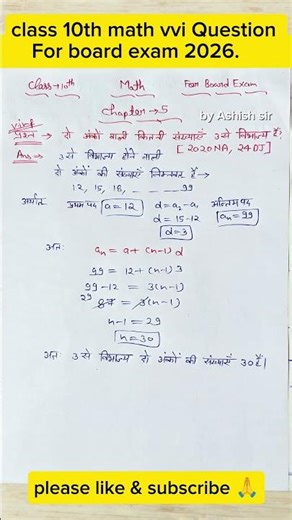 class 10th math vvi Question
For board exam 2026.
Class-10th Math For Board Exam
Chapter-5
by Ashish sir
प्रश्न → दो अंकों वाली कितनी संख्याएँ 3 से विभाज्य हैं?
[2020NA, 24DJ]
Ans → 3 से विभाज्य होने वाली
दो अंकों की संख्याएँ निम्नवत हैं→
12, 15, 18, ______ 99
अर्थात् प्रथम पद a=12 d=a₂-a₁ अन्तिम पद
d=15-12 aₙ=99
d=3
अतः aₙ = a+(n-1)d
99 = 12+(n-1)3
99-12 = 3(n-1)
29 87 = 3(n-1)
n-1=29
n=30
अतः 3 से विभाज्य दो अंकों की संख्याएँ 30 हैं|
please like & subscribe 🙏